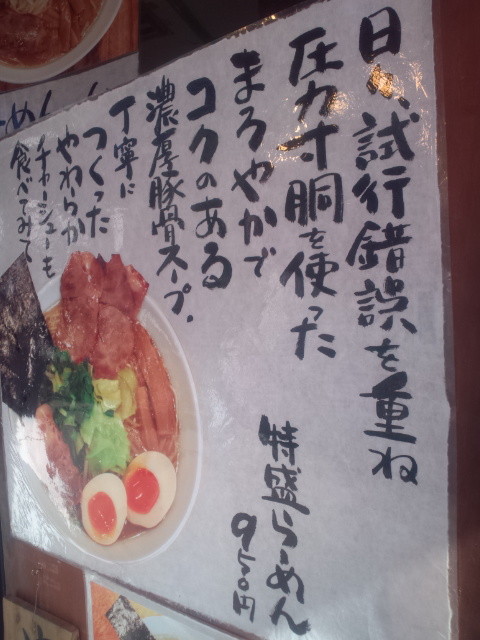 日々、試行錯誤を重ね
圧力寸胴を使った
まろやかで
コクのある
濃厚豚骨スープ。
丁寧に
つくった
やわらか
チャーシューも
食べてみて
特盛らーめん
950円